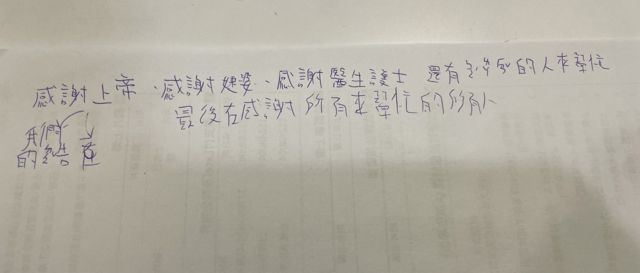 感謝上帝、感謝建婆、感謝醫生護士 還有 的人來幫忙
最後在感謝所有來幫忙的所有人
用們
的 在